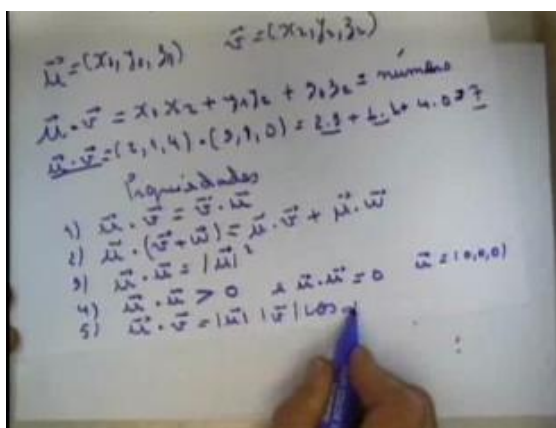 u⃗ = (x₁, y₁, z₁) v⃗ = (x₂, y₂, z₂)
u⃗ · v⃗ = x₁x₂ + y₁y₂ + z₁z₂ = número
u⃗ · v⃗ = (2, 1, 4) · (3, 1, 0) = 2.3 + 1.1 + 4.0 = 7
Propiedades
1) u⃗ · v⃗ = v⃗ · u⃗
2) u⃗ · (v⃗ + w⃗) = u⃗ · v⃗ + u⃗ · w⃗
3) u⃗ · u⃗ = |u⃗|²
4) u⃗ · u⃗ > 0 u⃗ · u⃗ = 0 u⃗ = (0,0,0)
5) u⃗ · v⃗ = |u⃗| |v⃗| cos